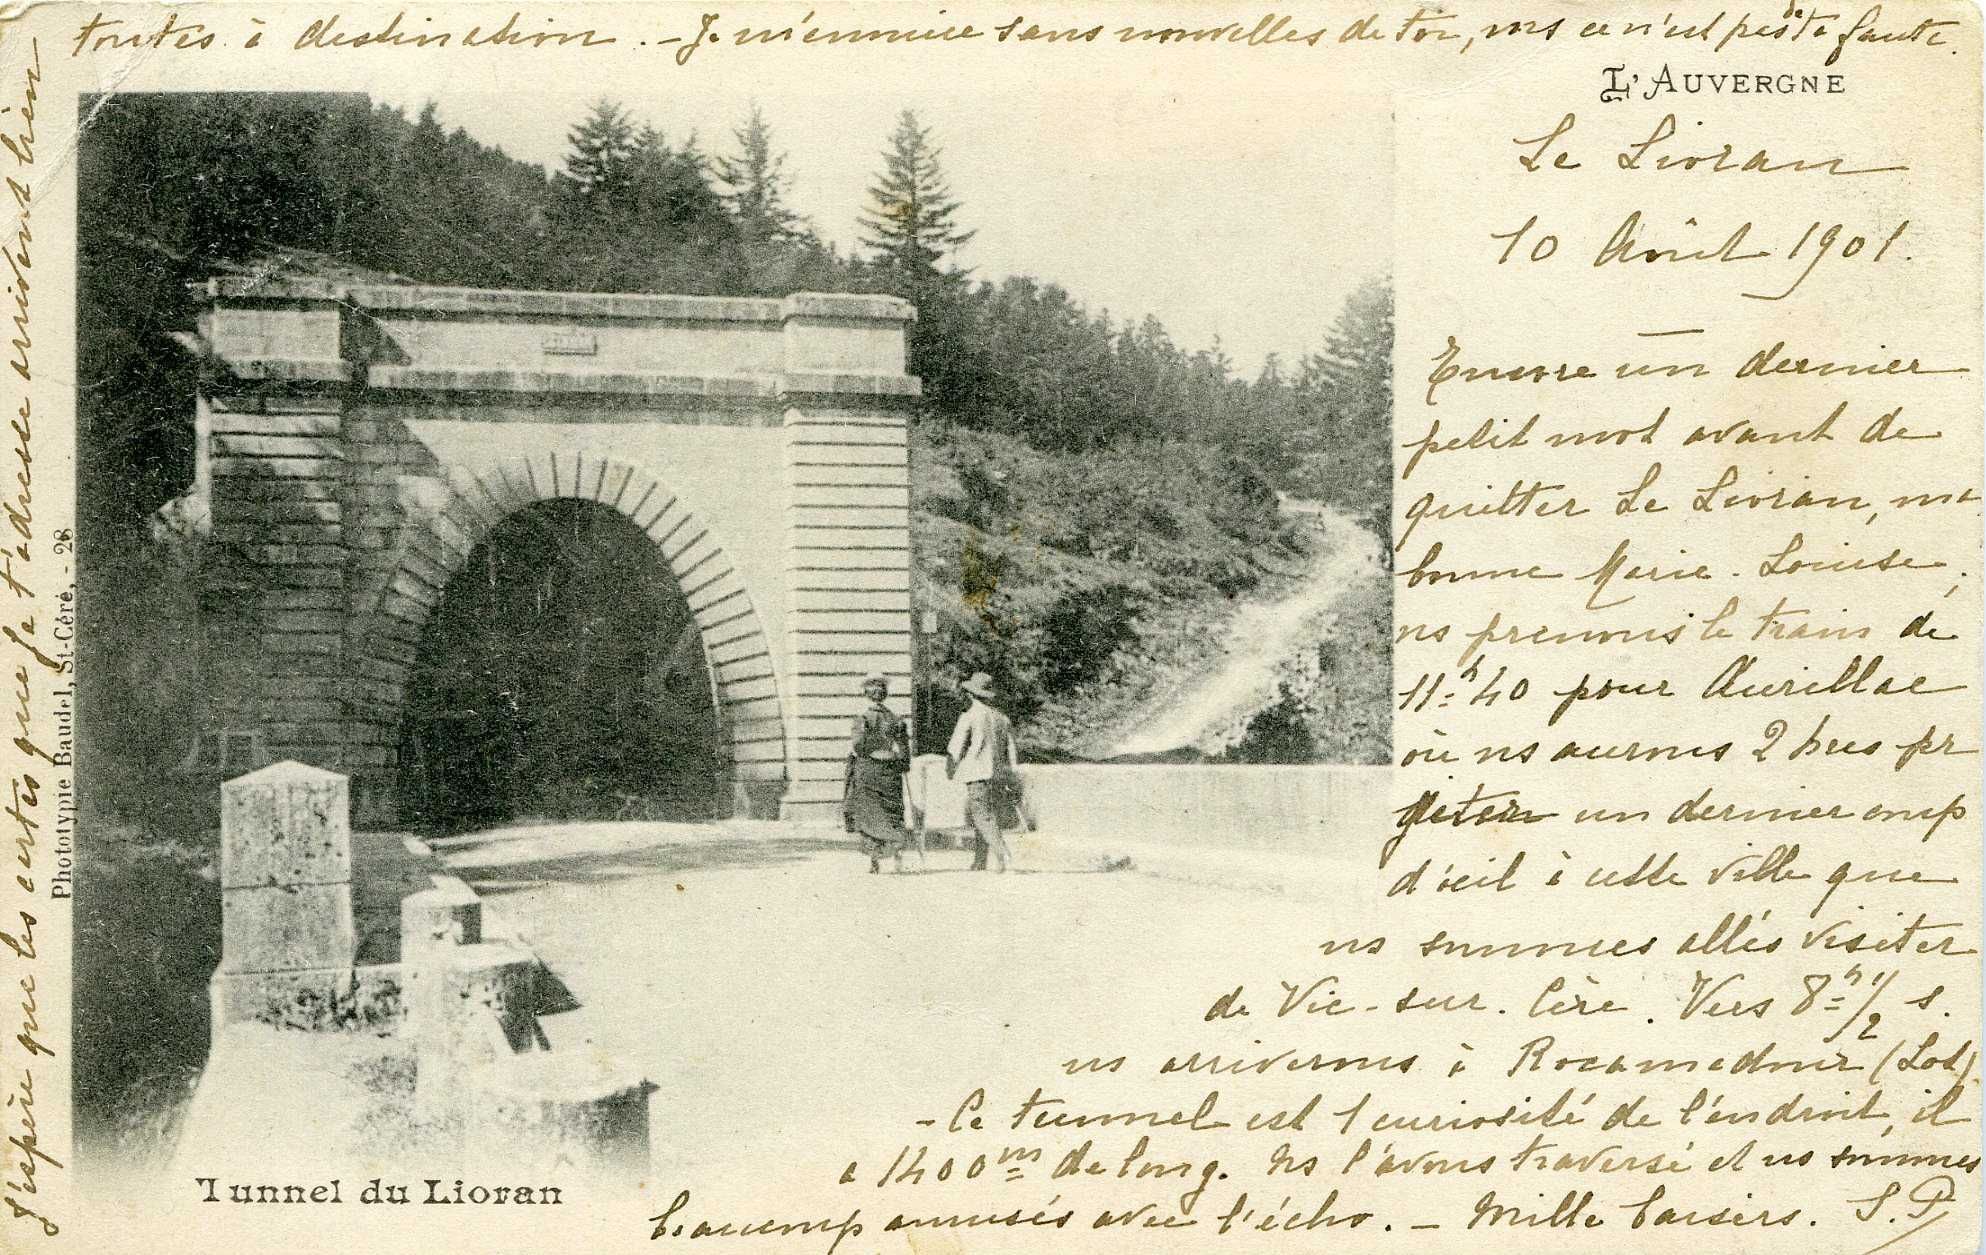 L'AUVERGNE
Le Lioran
10 Août 1901.
Encore un dernier
petit mot avant de
quitter Le Lioran, ma
bonne Marie-Louise,
ns prenons le train de
11h40 pour Aurillac
où ns aurons 2 hres pr
jeter un dernier coup
d'œil à cette ville que
ns sommes allés visiter
de Vic-sur-Cère. Vers 8h 1/2 s.
ns arriverons à Rocamadour (Lot)
- Ce tunnel est 1 curiosité de l'endroit, il
a 1400m de long. Ns l'avons traversé et ns sommes
beaucoup amusés avec l'écho. - Mille baisers. S. P
J'espère que les cartes que je t'adresse arrivent bien
toutes à destination. - Je m'ennuie sans nouvelles de toi, ms ce n'est pas de ta faute.
Phototypie Baudel, St-Céré, - 28
Tunnel du Lioran